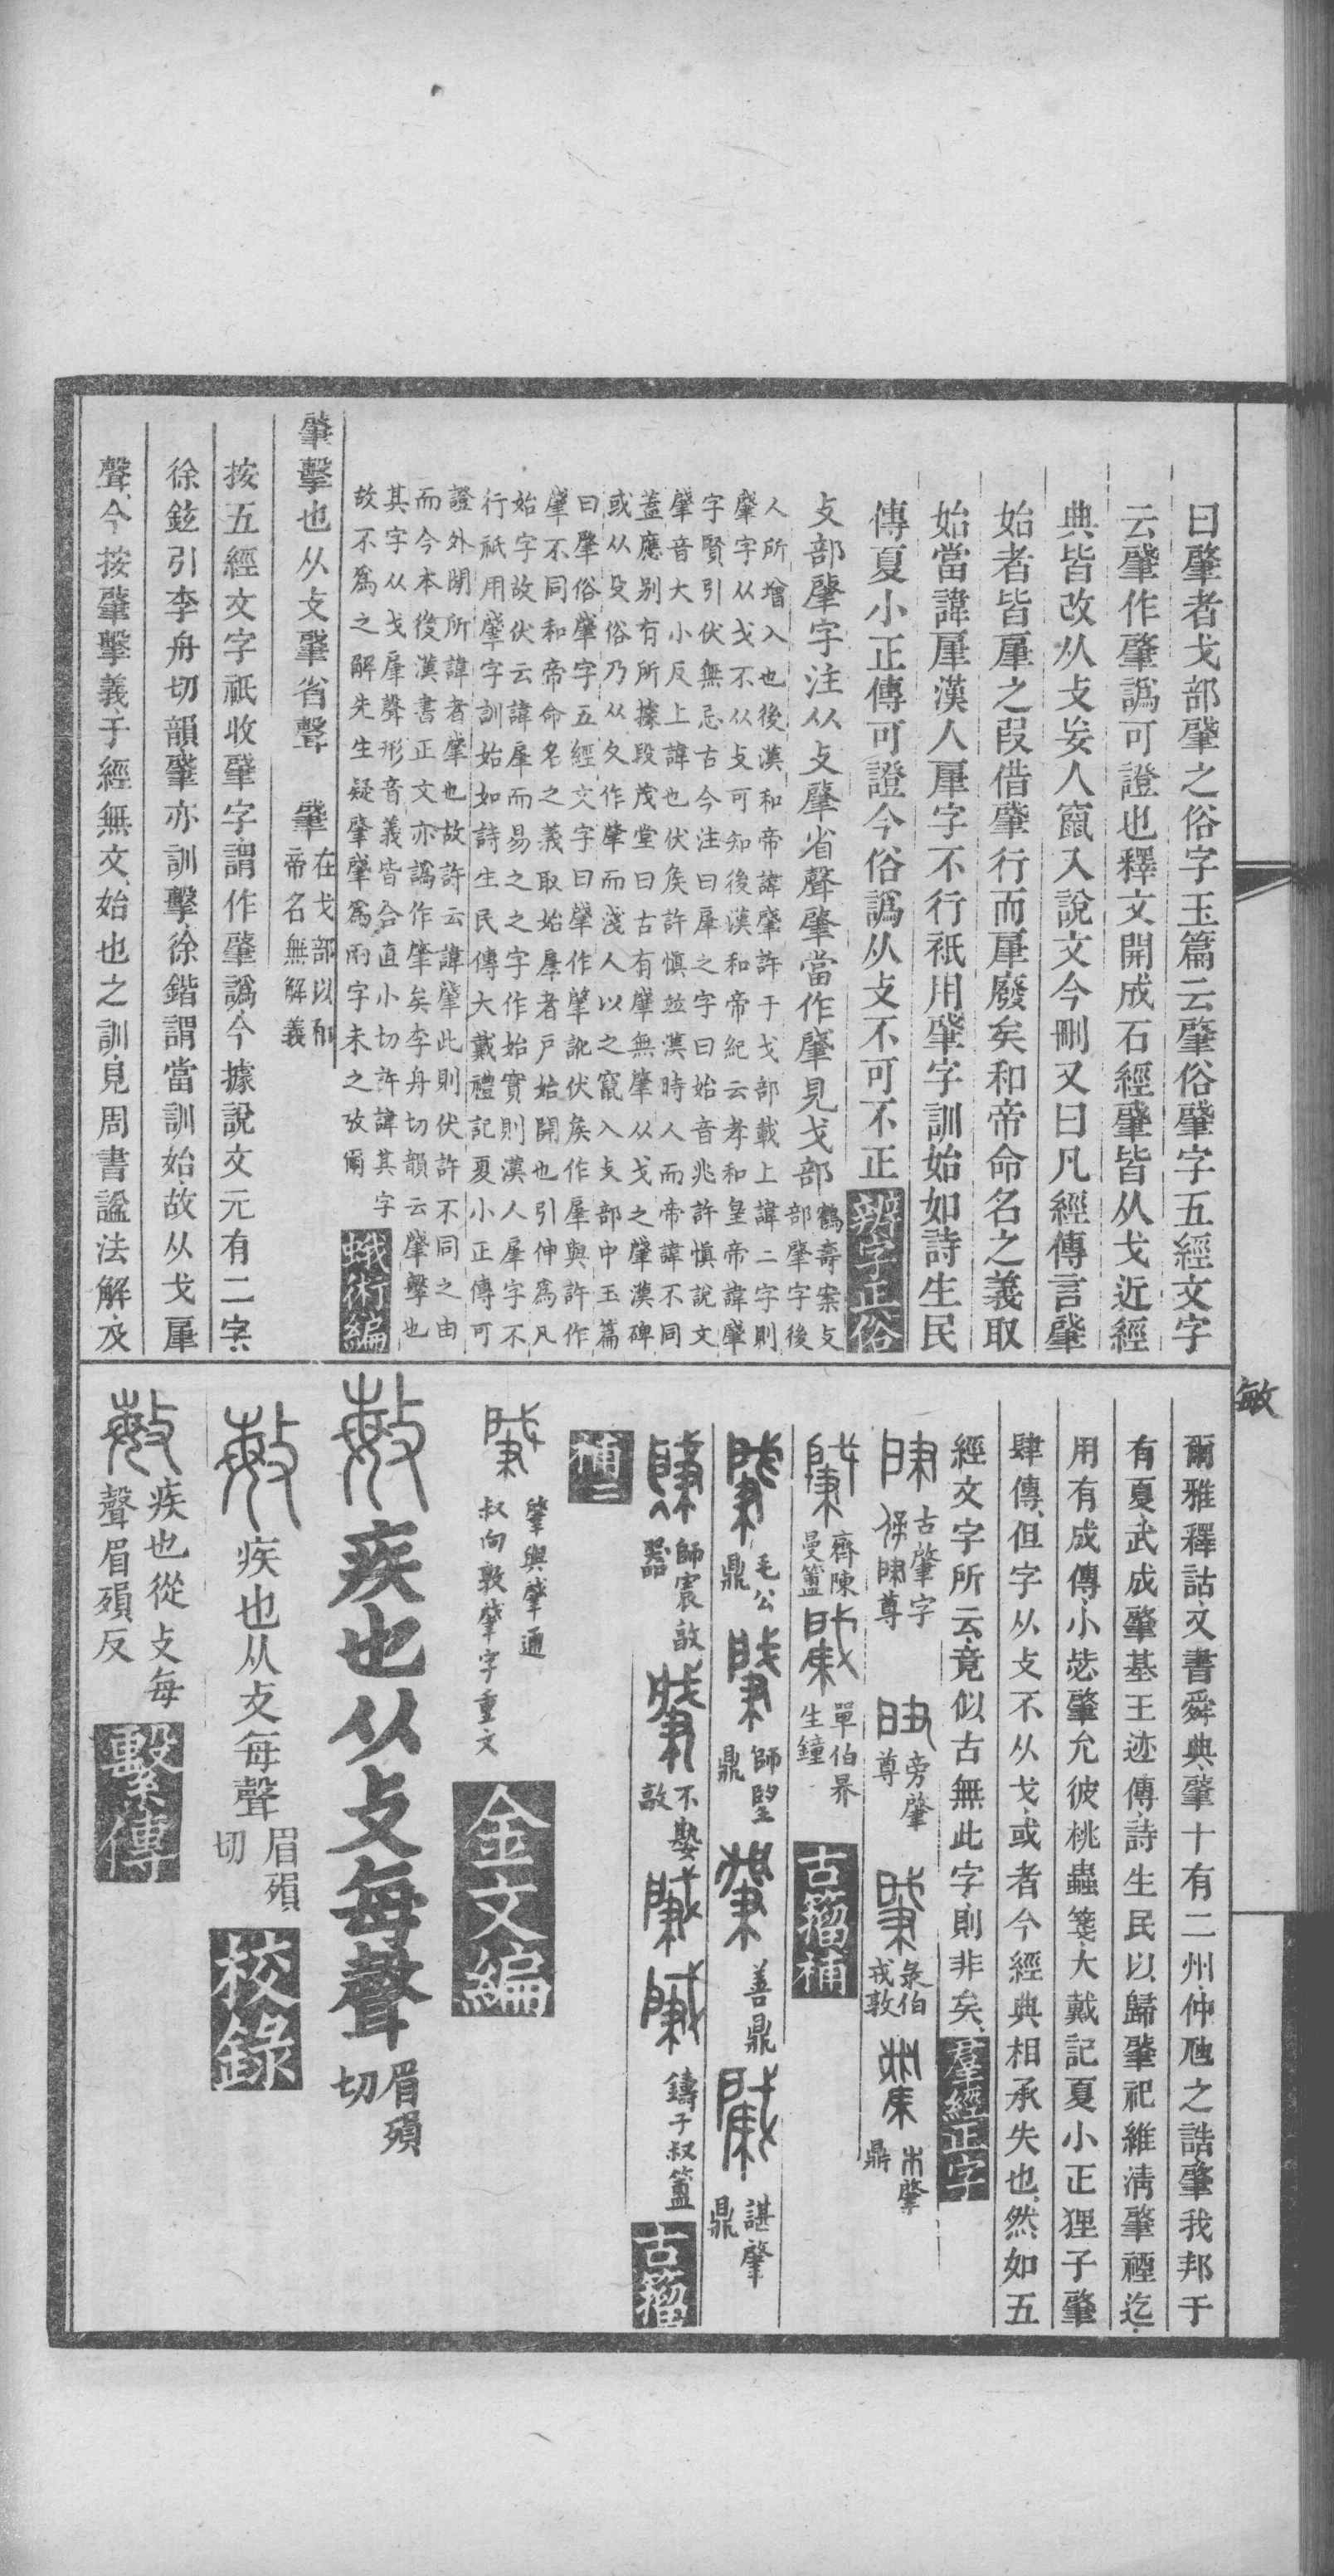 曰肈者戈部肈之俗字玉篇云肇俗肈字五經文字
云肈作肇譌可證也釋文開成石經肈皆从戈近經
典皆改从攴妄人竄入說文今刪又曰凡經傳言肈
始者皆肁之叚借肈行而肁廢矣和帝命名之義取
始當諱肁漢人肁字不行祗用肈字訓始如詩生民
傳夏小正傳可證今俗譌从攴不可不正
辨字正俗
攴部肇字注从攴肈省聲肈當作肈見戈部
鶴壽案攴
部肇字後
人所增入也後漢和帝諱肈許于戈部載上諱二字則
肈字从戈不从攴可知後漢和帝紀云孝和皇帝諱肈
字賢引伏無忌古今注曰肁之字曰始音兆許慎說文
肈音大小反上諱也伏矦許慎並漢時人而帝諱不同
蓋應别有所據段茂堂曰古有肈無肇从戈之肈漢碑
或从殳俗乃从攵作肇而淺人以之竄入攴部中玉篇
曰肇俗肈字五經文字曰肈作肇訛伏矦作肁與許作
肈不同和帝命名之義取始肁者戶始開也引伸爲凡
始字故伏云諱肁而易之之字作始實則漢人肁字不
行祇用肈字訓始如詩生民傳大戴禮記夏小正傳可
證外閒所諱者肈也故許云諱肈此則伏許不同之由
而今本後漢書正文亦譌作肇矣李舟切韻云肈擊也
其字从戈肁聲形音義皆合直小切許諱其字
故不爲之解先生疑肈肇爲兩字未之攷爾
蛾術編
肇擊也从攴肈省聲
肈
在戈部以和
帝名無解義
按五經文字祇收肈字謂作肇譌今據說文元有二字
徐鉉引李舟切韻肈亦訓擊徐鍇謂當訓始故从戈肁
聲今按肇擊義于經無文始也之訓見周書謚法解及
敏
爾雅釋詁文書舜典肇十有二州仲虺之誥肇我邦于
有夏武成肇基王迹傳詩生民以歸肇祀維清肇禋迄
用有成傳小毖肇允彼桃蟲箋大戴記夏小正貍子肇
肆傳但字从攴不从戈或者今經典相承失也然如五
經文字所云竟似古無此字則非矣
羣經正字
古肇字
尊
旁肇
尊
彔伯
戎敦
肇
鼎
齊陳
曼簠
單伯昇
生鐘
古籀補
毛公
鼎
師望
鼎
善鼎
諶肇
鼎
師㝨敦
器
不𡢁
敦
鑄子叔簠
古籀
補二
肈與肇通
叔向敦肇字重文
金文編
疾也从攴每聲
眉殞
切
疾也从攴每聲
眉殞
切
校錄
疾也從攴每
聲眉殞反
繫傳